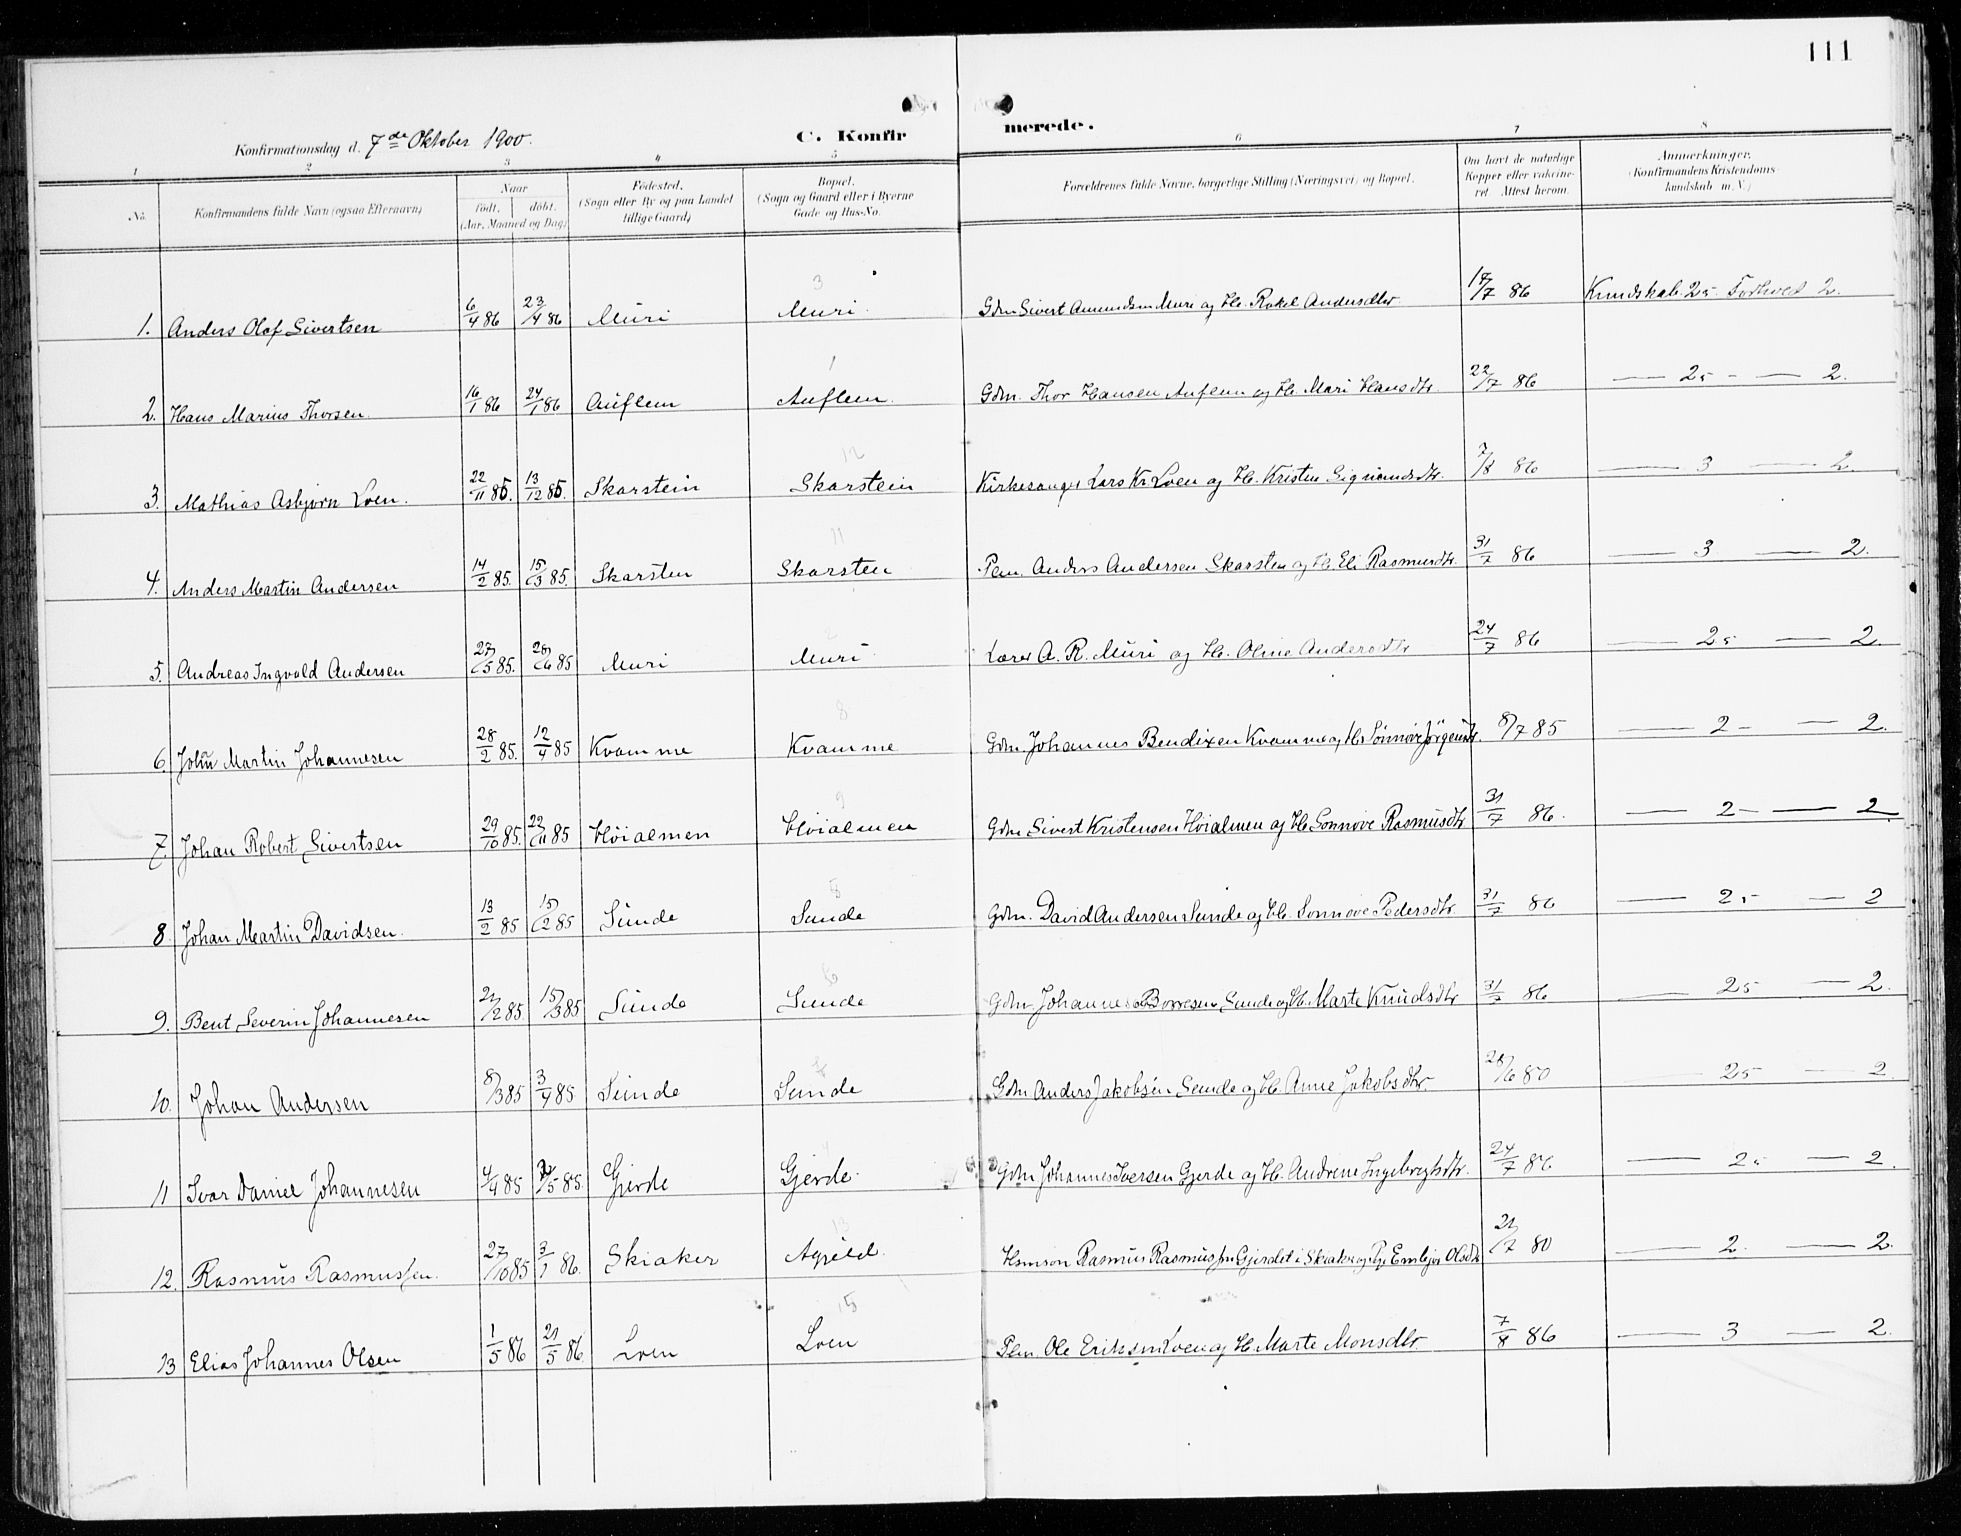 111
Konfirmationsdag d. 7de Oktober 1900.
C. Konfirmerede.
1 2 3 4 5 6 7 8
No.
Konfirmandens fulde Navn (ogsaa Efternavn)
Naar
født. døbt.
(Aar, Maaned og Dag)
Fødested.
(Sogn eller By og paa Landet
tillige Gaard)
Bopæl.
(Sogn og Gaard eller i Byerne
Gade og Hus-No.
Forældrenes fulde Navne, borgerlige Stilling (Næringsvei) og Bopæl.
Om havt de naturlige
Kopper eller vakcine-
ret. Attest herom.
Anmerkninger.
(Konfirmandens Kristendoms-
kundskab m. V.)
3
1. Anders Olaf Sivertsen 6/4 86 23/4 86 Muri Muri Gdm Sivert Amundsen Muri og H. Rakel Andersdtr 14/7 86 Kundskab 25 Forhold 2.
1
2. Hans Marius Thorsen 16/1 86 24/1 86 Auflem Auflem. Gdm. Thor Hansen Auflem og H. Mari Hansdtr. 22/7 86 — 25 — 2.
12
3. Mathias Asbjørn Loen. 22/11 85. 13/12 85. Skarstein Skarstein Kirkesanger Lars Kr Loen og H. Kristen Sigmundsdtr. 7/8 86 — 3 — 2.
11
4. Anders Martin Andersen 14/2 85. 15/3 85. Skarsten Skarsten Pem. Anders Andersen Skarsten og H. Eli Rasmusdtr. 31/7 86 — 3 — 2.
2
5. Andreas Ingvald Andersen 27/5 85. 28/6 85 Muri Muri Lærer A. R. Muri og H. Oline Andersdtr 24/7 86 — 25 — 2.
8
6. Johan Martin Johannesen 28/2 85. 12/4 85 Kvamme Kvamme Gdm. Johannes Bendixen Kvamme og H. Sønnøve Jørgensdtr. 8/7 85 — 2 — 2.
9
7. Johan Robert Sivertsen 29/10 85. 22/11 85 Høialmen Høialmen Gdm Sivert Kristensen Høialmen og H. Sønnøve Rasmusdtr 31/7 86. — 2 — 2
5
8. Johan Martin Davidsen. 13/2 85 15/2 85 Sunde Sunde Gdm. David Andersen Sunde og H. Sønnøve Pedersdtr. 31/7 86 — 25 — 2
6
9. Bent Severin Johannesen 21/2 85 15/3 85 Sunde Sunde Gdm. Johannes Borresen Sunde og H. Marte Knudsdtr 31/7 86 — 25 — 2.
7
10. Johan Andersen 8/3 85 3/4 85 Sunde Sunde Gdm Anders Jakobsen Sunde og H. Anne Jakobsdtr 28/6 80 — 25 — 2.
4
11 Ivar Daniel Johannesen 4/4 85 /5 85 Gjerde Gjerde. Gdm Johannes Iversen Gjerde og H. Andrine Ingebregtsdtr. 24/7 86 — 25 — 2.
13
12. Rasmus Rasmussen. 27/10 85 3/1 86. Skiaker Rasmus Rasmussen Gjerdet i Skiaker og Olsdtr 21/7 80 — 2. — 2.
15
13 Elias Johannes Olsen 1/5 86 21/5 86. Loen Loen Pem. Ole Eriksen Loen og H. Marte Monsdtr. 7/8 86 — 3 — 2.